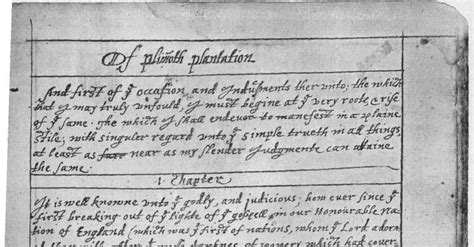 Of plimoth plantation
And first of yͤ occasion and Indusments ther unto; the which
that I may truly unfould, I must begine at yͤ very roote & rise
of yͤ same. The which I shall endevor to manefest in a plaine
stile; with singuler regard unto yͤ simple trueth in all things,
at least as near as my slender Judgmente can attaine
the same.
1. Chapter
It is well knowne unto yͤ godly, and judicious; how ever since yͤ
first breaking out of yͤ lighte of yͤ gospell, in our Honourable Na-
tion of England (which was yͤ first of nations, whom yͤ Lord adorn